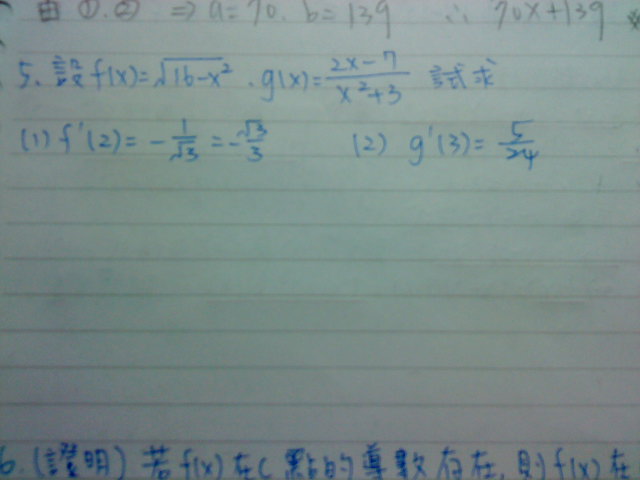 由 ①.② ⇒ a=70. b=139 ∴ 70x+139
5. 設 f(x)=√16-x² . g(x)=2x-7/x²+3 試求
(1) f'(2)= -1/√3 = -√3/3 (2) g'(3)= 5/24
6. (證明) 若 f(x) 在 c 點的導數存在, 則 f(x) 在